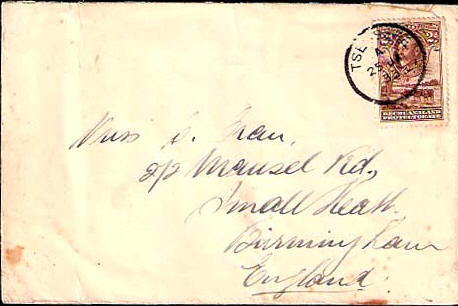 2d
TSE
A
25
BECHUANALAND
PROTECTORATE
Miss
Mansel Rd.,
Small Heath.
Birmingham
England.